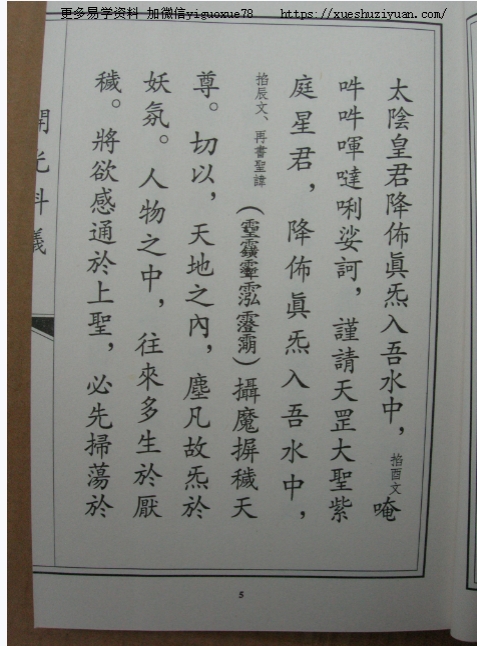 更多易学资料 加微信yiguoxue78 https://xueshuziyuan.com/
太陰皇君降佈眞炁入吾水中，掐酉文唵
吽吽喗噠唎娑訶，謹請天罡大聖紫
庭星君，降佈眞炁入吾水中，
掐辰文、再書聖諱（）攝魔摒穢天
尊。切以，天地之內，塵凡故炁於
妖氛。人物之中，往來多生於厭
穢。將欲感通於上聖，必先掃蕩於
開光科儀
5